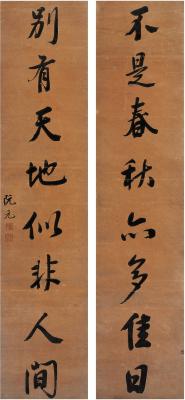 不是春秋亦多佳日
别有天地似非人間
阮元